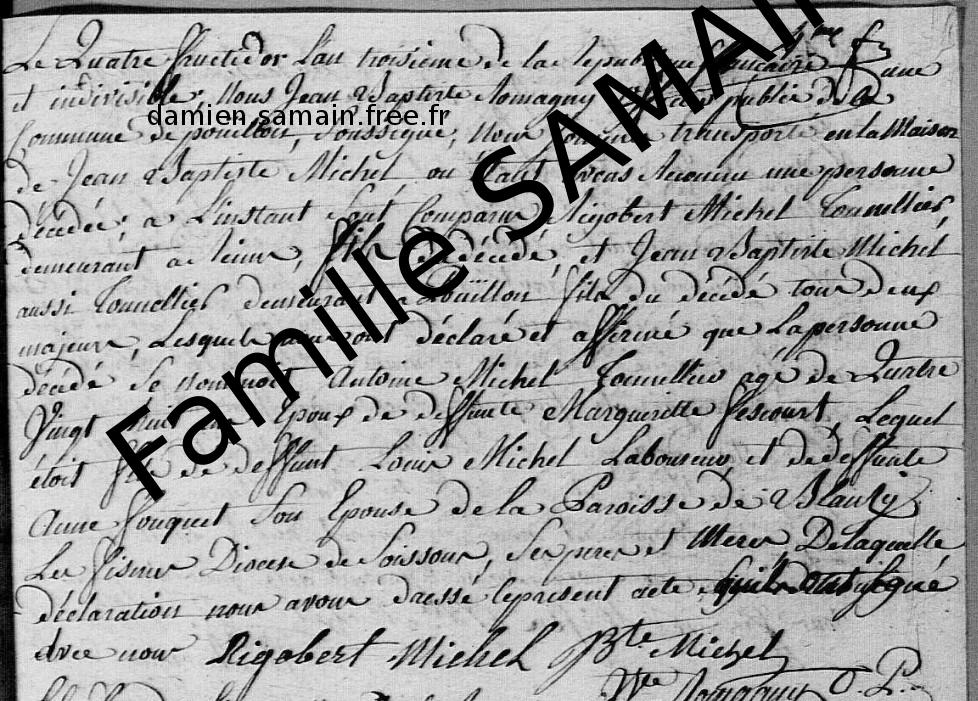 Le Quatre fructidor Lan troisieme de la republique francaise une
et indivisible. Nous Jean Baptiste Romagny officier public de la
Commune de pouillon, Soussigné, Nous transporté en la Maison
de Jean Baptiste Michel ou Etant une personne
décédée; a Linstant Sont Comparus Rigobert Michel Tonnellier,
demeurant a Reims, fils du décédé, et Jean Baptiste Michel
aussi Tonnellier demeurant a Poüillon fils du décédé tous deux
majeurs, Lesquels nous ont déclaré et affirmé que La personne
décédé Se nommoit Antoine Michel Tonnellier agé de Quatre
Vingt Epoux de deffunte Margueritte Lequel
étoit fils de deffunt Louis Michel Laboureur, et de deffunte
Anne fouquet Son Epouse de la Paroisse de Blanzy
Les fismes Diocese de Soissons, Ses peres et Meres De laquelle
déclaration nous avons dressé le present acte quils ont signé
avec nous Rigobert Michel Bte Michel
Romagny O. P.
Famille SAMAIN
damien.samain.free.fr